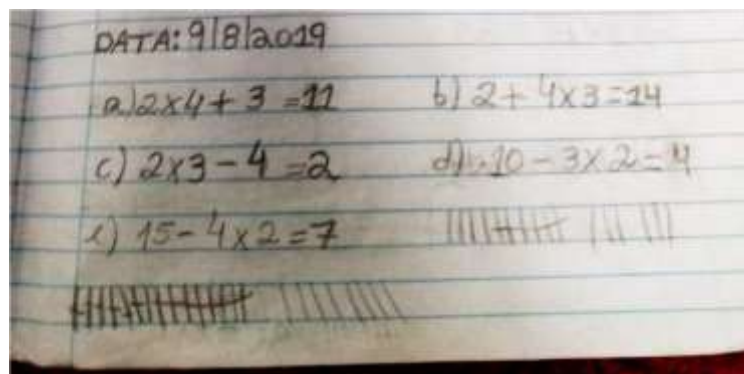 DATA: 9/8/2019
a) 2x4+3=11 b) 2+4x3=14
c) 2x3-4=2 d) 10-3x2=4
e) 15-4x2=7